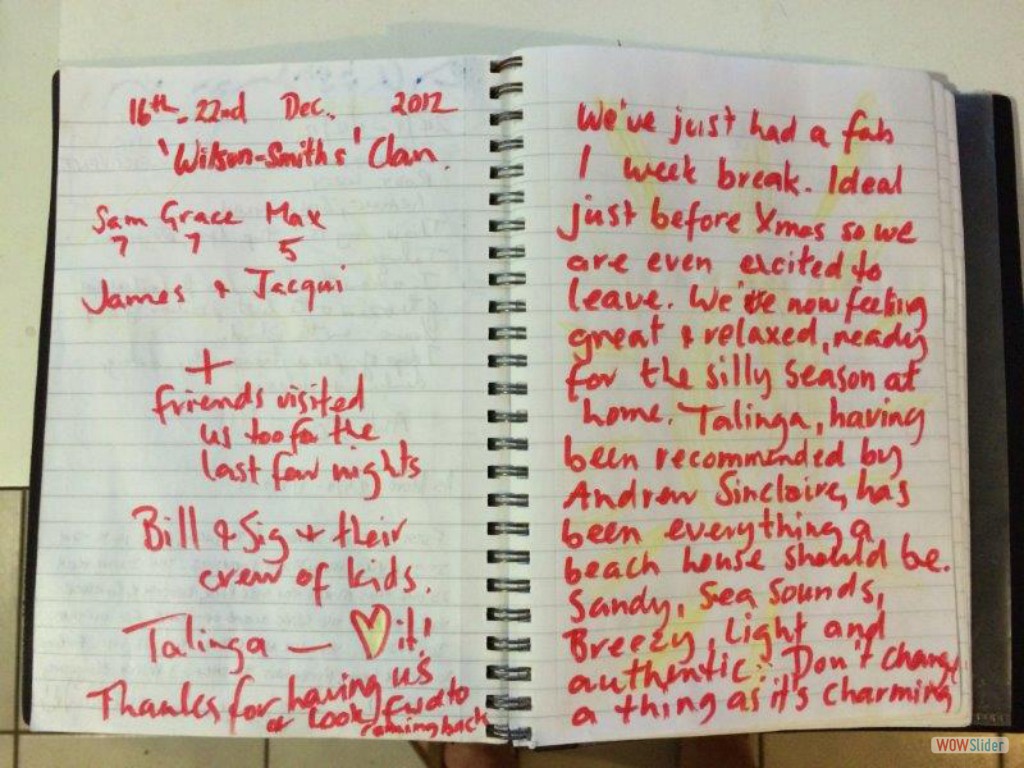 16th - 22nd Dec. 2012
'Wilson-Smiths' Clan.
Sam Grace Max
7 7 5
James & Jacqui
+
friends visited
us too for the
last few nights
Bill & Sig & their
crew of kids.
Talinga — ♡ it!
Thanks for having us
& look fwd to
coming back
We've just had a fab
1 week break. Ideal
just before Xmas so we
are even excited to
leave. We're now feeling
great & relaxed, ready
for the silly season at
home. Talinga, having
been recommended by
Andrew Sinclaire, has
been everything a
beach house should be.
Sandy, Sea Sounds,
Breezy, Light and
authentic. Don't change
a thing as it's charming
WOWSlider